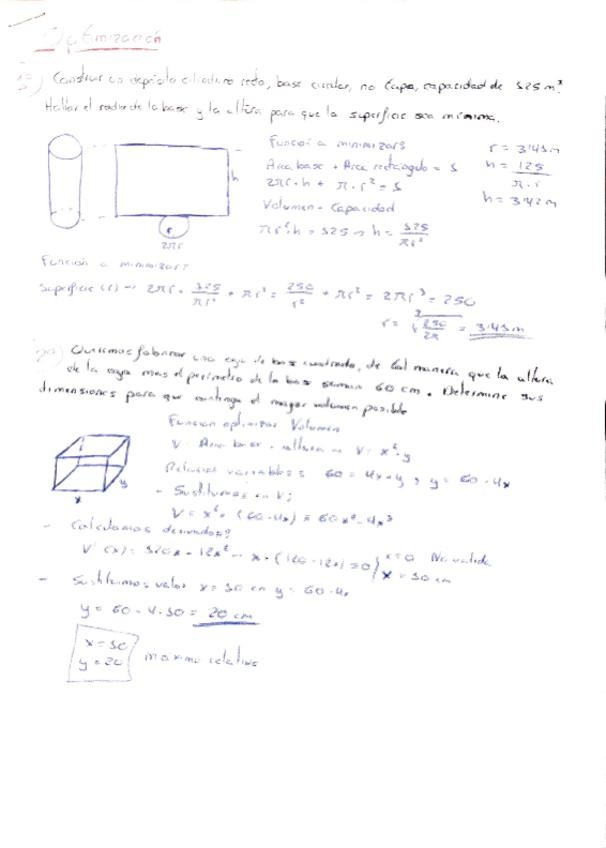 Optimización
1º) Construir un depósito cilíndrico recto, base circular, no tapa, capacidad de 125 m³.
Hallar el radio de la base y la altura para que la superficie sea mínima.
Función a minimizar:
Área base + Área rectángulo = S
2πr·h + π·r² = S
Volumen = Capacidad
πr²·h = 125 → h = 125/πr²
r = 3'43 m
h = 125/π·r
h = 3'42 m
h
r
2πr
Función a minimizar:
Superficie (r) → 2πr · 125/πr² + πr² = 250/r² + πr² = 2πr³ = 250
r = ∛250/2π = 3'43 m
2º) Queremos fabricar una caja de base cuadrada, de tal manera que la altura
de la caja mas el perímetro de la base suman 60 cm. Determine sus
dimensiones para que contenga el mayor volumen posible
Función optimizar Volumen
V = Área base · altura → V = x²·y
Relación variables: 60 = 4x+y, y = 60-4x
- Sustituimos en V:
V = x² · (60-4x) = 60x²-4x³
x
y
- Calculamos derivadas:
V'(x) = 120x - 12x² → x·(120-12x) = 0 } x=0 No valida
x = 10 cm
- Sustituimos valor x = 10 en y = 60-4x
y = 60 - 4·10 = 20 cm
x = 10
y = 20
maximo relativo